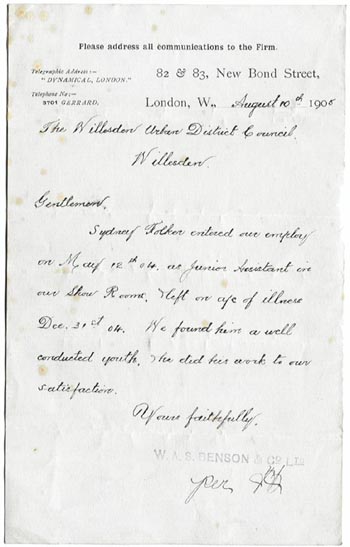 Please address all communications to the Firm.
Telegraphic Address:—
"DYNAMICAL, LONDON."
Telephone No:—
3701 GERRARD.
82 & 83, New Bond Street,
London, W., August 10th 1905
The Willesden Urban District Council.
Willesden.
Gentlemen.
Sydney Folker entered our employ
on May 12th 04. as Junior Assistant in
our Show Rooms, & left on a/c of illness
Dec. 31st 04. We found him a well
conducted youth, & he did his work to our
satisfaction.
Yours faithfully.
W. A. S. BENSON & CO. LTD
per